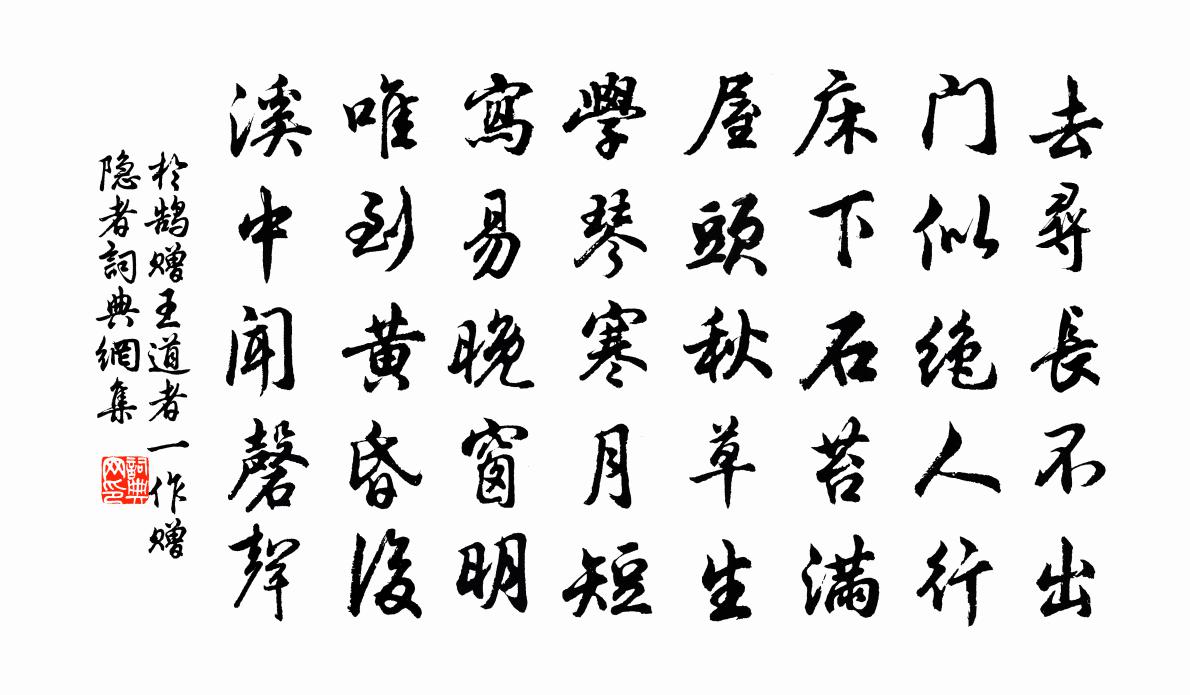 去尋長不出
门似绝人行
床下石苔满
屋頭秋草生
學琴寒月短
寫易晚窗明
唯到黄昏後
溪中闻磬聲
於鹄赠王道者一作赠
隐者詞典網集
詞典
网印